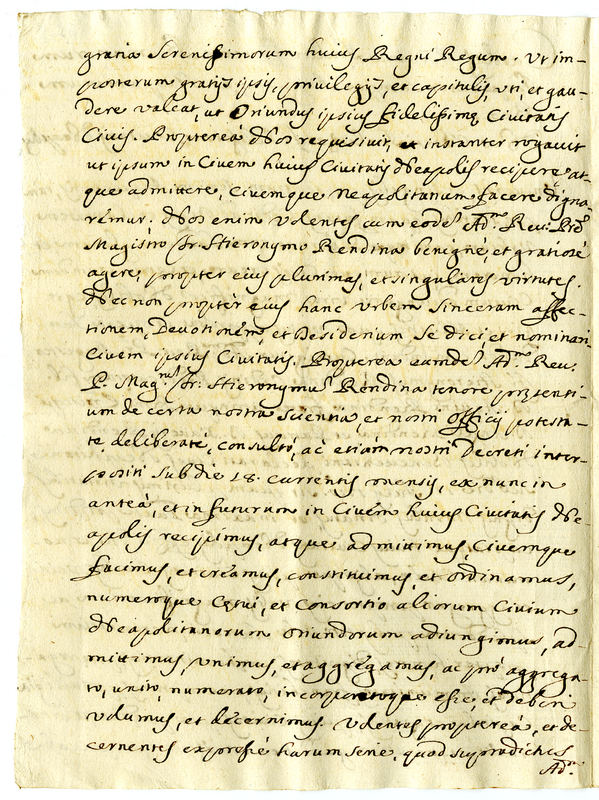 gratia Serenissimorum huius Regni Regum. Ut im-
posterum gratijs ipsis, privilegijs, et capitulis, uti, et gau-
dere valeat, ut Oriundus ipsius fidelissimę Civitatis
Civis. Proptereà Nos requisivit, et instanter rogavit
ut ipsum in Civem huius Civitatis Neapolis recipere at-
que admittere, Civemque Neapolitanum facere digna-
remur; Nos enim volentes cum eodẽ Ad.m Rev. Prẽ
Magistro fr. Hieronymo Rendina benignè, et gratiosè
agere, propter eius plurimas, et singulares virtutes.
Nec non proptèr eius hanc Urbem sinceram affec-
tionem, Devotionem, et Desiderium se dici, et nominari
Civem ipsius Civitatis. Propterea eumdẽ Ad.m Rev.
P. Mag.rum fr. Hieronymum Rendina tenore pręsenti-
um de certa nostra scientia, et nostri Officij potesta-
te, deliberatè, consultò, ac etiam nostri Decreti inter-
positi sub die 18. currentis mensis, ex nunc in
anteà, et in futurum in Civem huius Civitatis Ne-
apolis recipimus, atque admittimus, Civemque
facimus, et creamus, constituimus, et ordinamus,
numeroque Cętui, et Consortio aliorum Civium
Neapolitanorum oriundorum adiungimus, ad-
mittimus, unimus, et aggregamus, ac pro aggrega-
to, unito, numerato, incorporatoque esse, et deberi
volumus, et decernimus. Volentes proptereà, et de-
cernentes expressè harum serie, quod supradictus
Ad.m